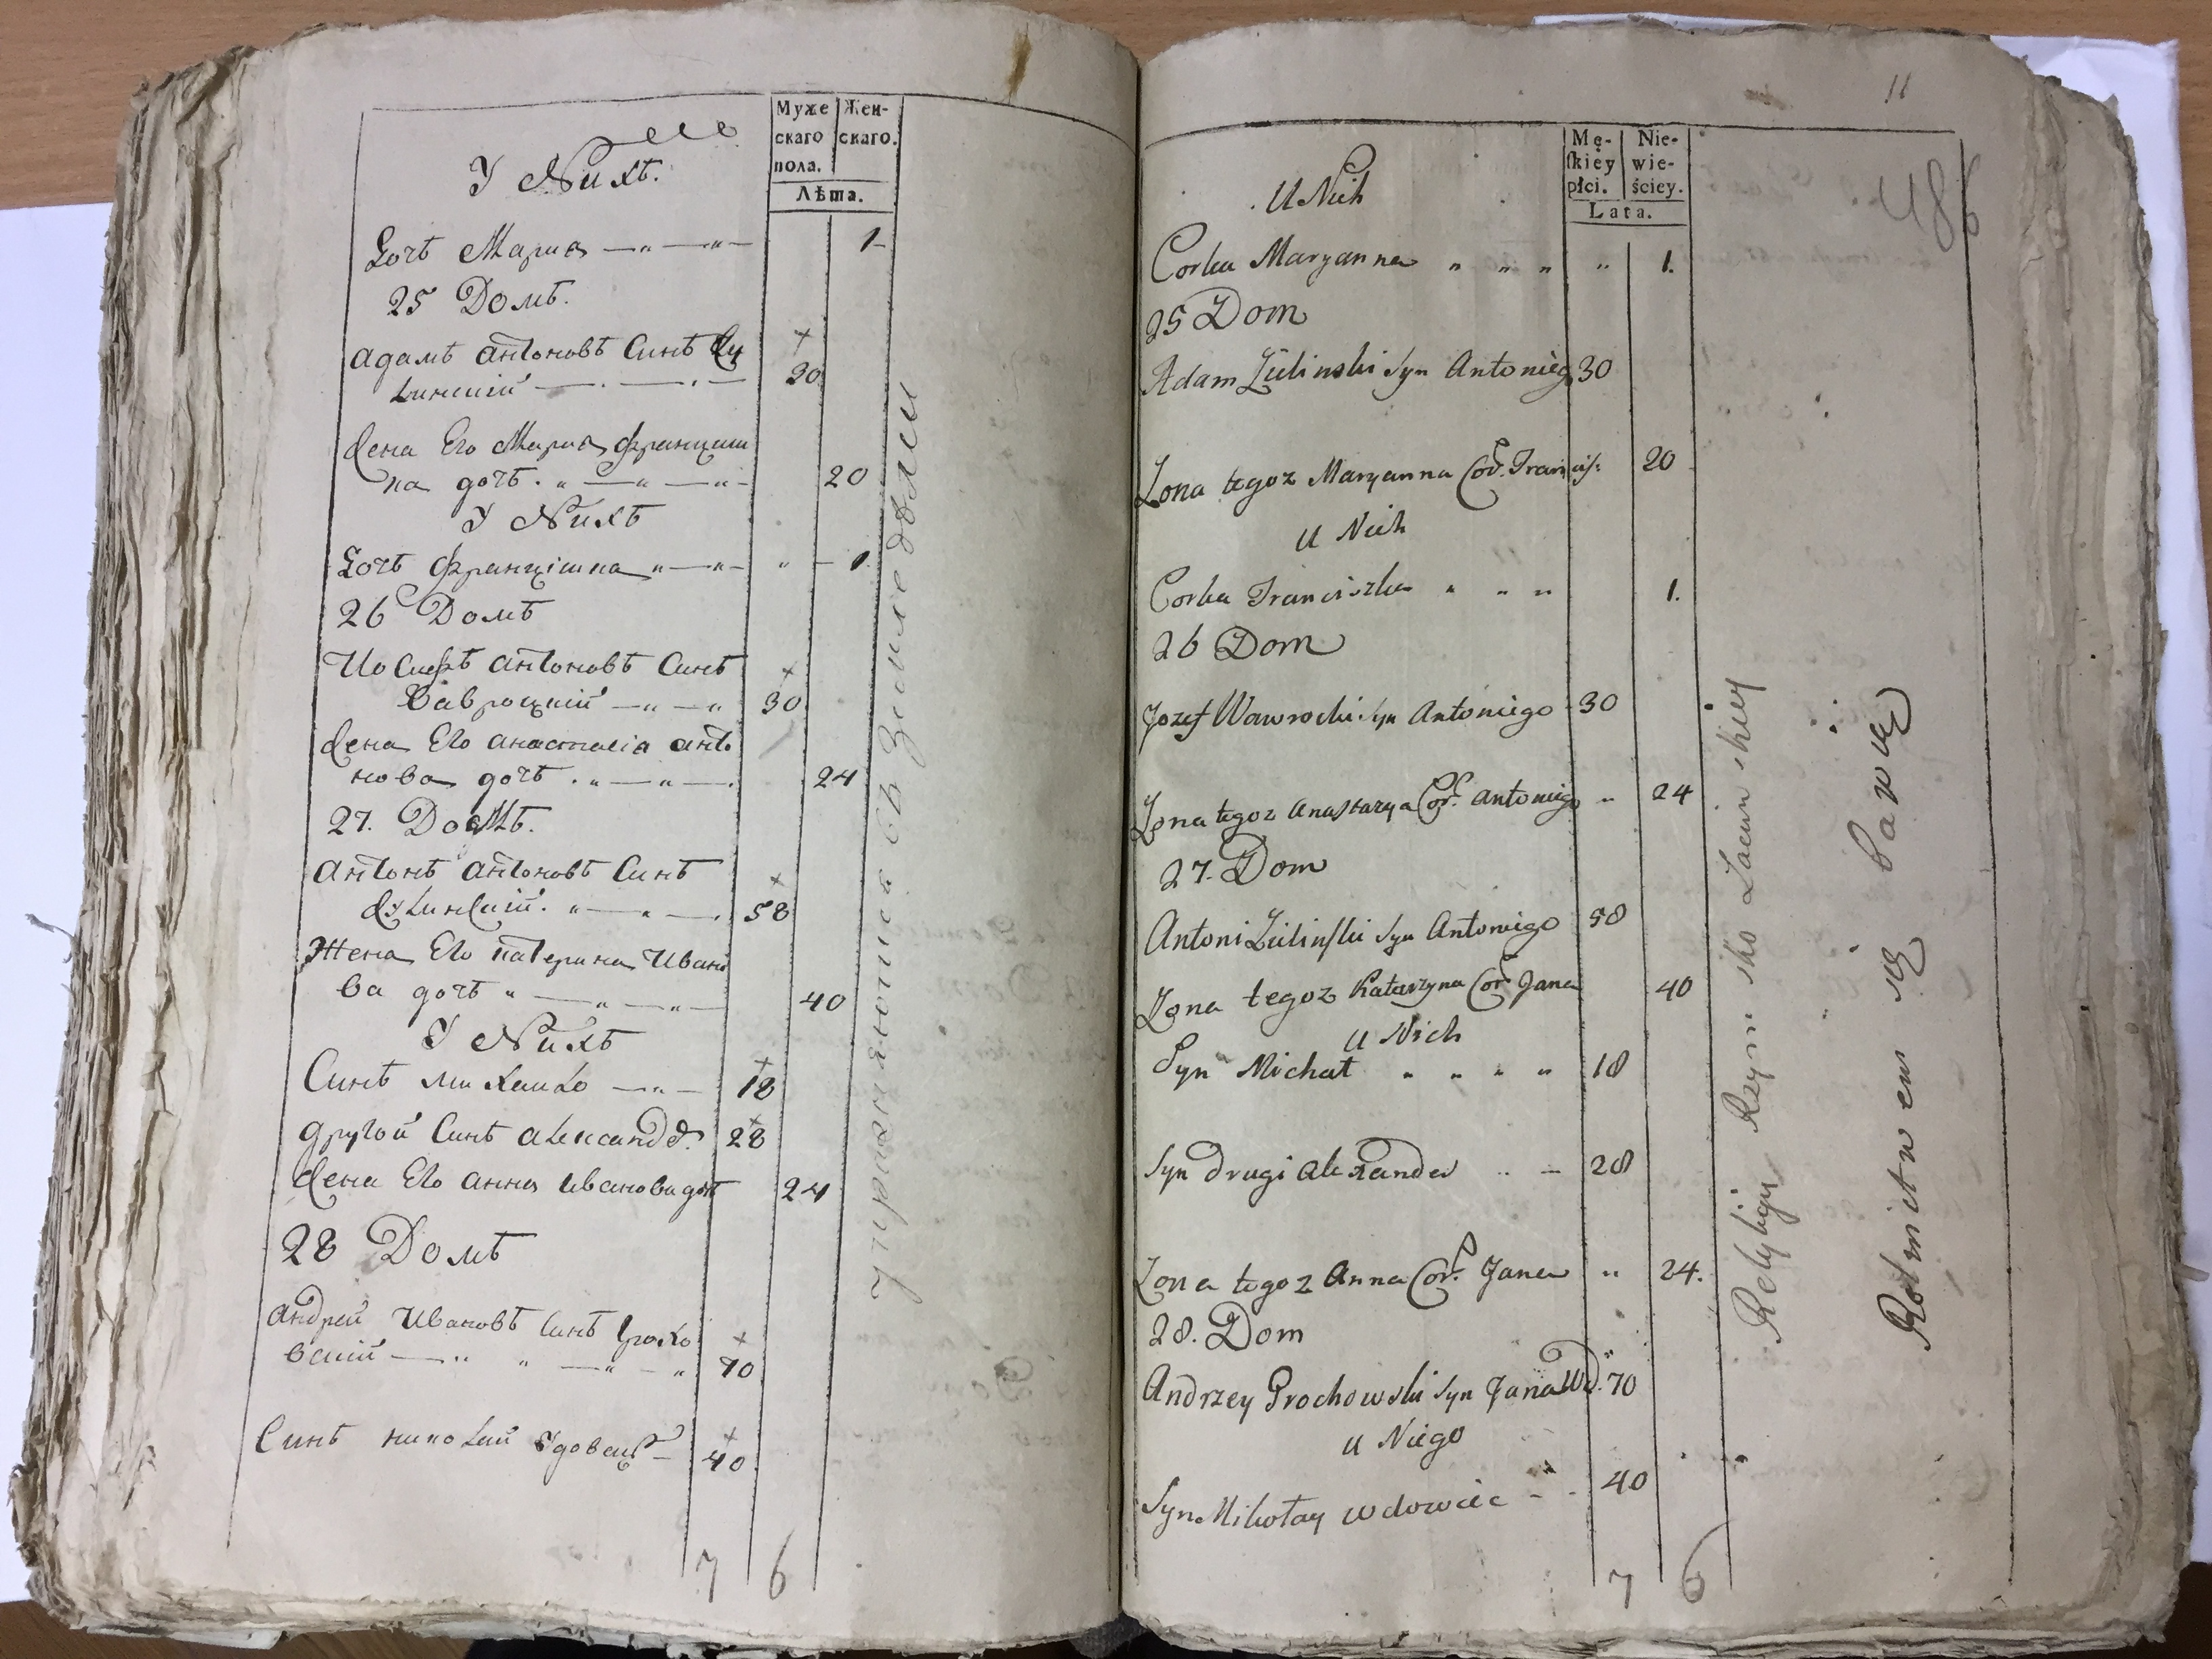 Муже
скаго
пола.
Жен-
скаго.
Лѣта.
У Нихъ.
Дочь Мария 1
25 Домъ.
Адамъ Антоновъ Синъ Жу
линскій 30
Жена Его Мария Францишк
на дочъ 20
У Нихъ
Дочъ Францишка 1
26 Домъ
Иосифъ Антоновъ Синъ
Вавроцкій 30
Жена Его Анастасія Анто
нова дочъ 24
27. Домъ.
Антонъ Антоновъ Синъ
Жулинскій. 58
Жена Его Катерина Ивано
ва дочъ 40
У Нихъ
Синъ Михайло 18
Другой Синъ Александ. 28
Жена Его Анна Иванова дочъ 24
28 Домъ
Андрей Ивановъ Синъ Грохо
вскій 70
Синъ Николай Удовецъ 40
7 6
упражняются въ Земледѣлии
11
486
Mę-
skiéy
płci.
Nie-
wie-
ściey.
Lata.
U Nich
Corka Maryanna 1.
25 Dom
Adam Żulinski Syn Antonieg 30
Zona tegoz Maryanna Cor. Francis: 20
U Nich
Corka Franciszka 1.
26 Dom
Jozef Wawrocki Syn Antoniego 30
Zona tegoz Anastazya Cor. Antoniego 24
27. Dom
Antoni Żulinski Syn Antoniego 58
Zona tegoz Katarzyna Cor. Jana 40
U Nich
Syn Michał 18
Syn drugi Alexander 28
Zona tegoz Anna Cor. Jana 24.
28. Dom
Andrzey Grochowski Syn Jana Wd. 70
U Niego
Syn Mikołay wdowiec 40
7 6
Religiyi Rzymsko Łacinskiey
Rolnictwem się bawią